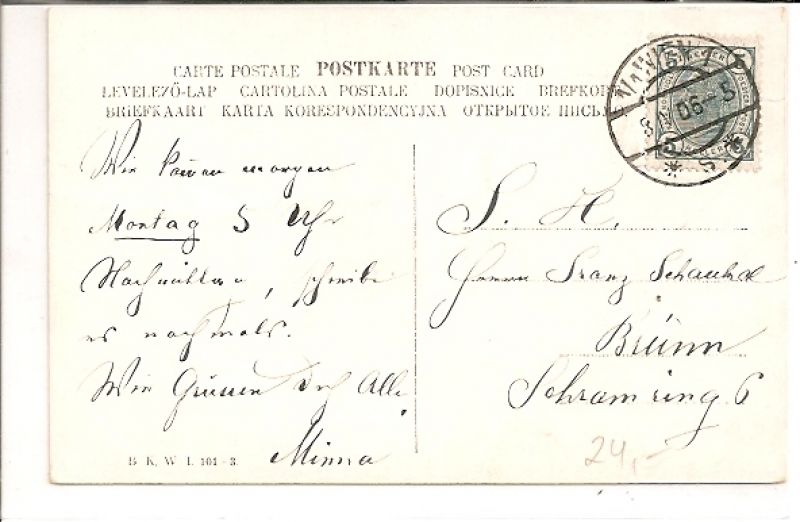 CARTE POSTALE POSTKARTE POST CARD
LEVELEZŐ-LAP CARTOLINA POSTALE DOPISNICE BREFKORT
BRIEFKAART KARTA KORESPONDENCYJNA ОТКРЫТОЕ ПИСЬМО
WIEN 1
06-5
Wir kommen morgen
Montag 5 Uhr
Nachmittag, schreibe
es nochmals.
Wir Grüssen Dich Alle
Minna
B. K. W. I. 101-3.
S. H.
Herrn Franz
Brünn
Schramring 6
24,-